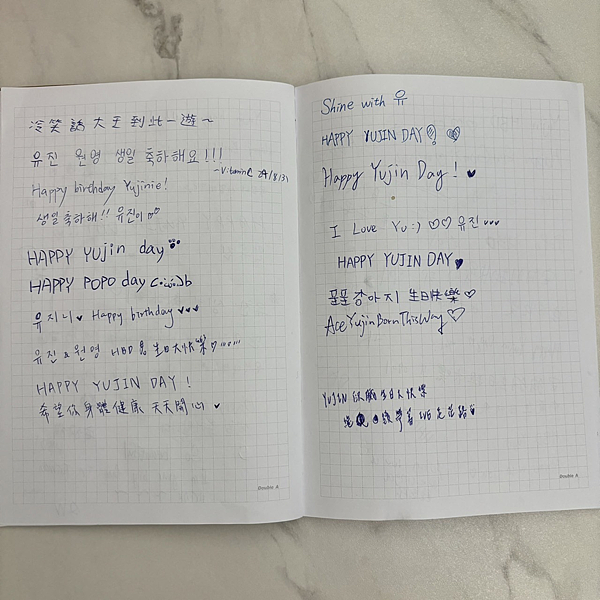 冷笑話大王到此一遊~
유진 원영 생일 축하해요!!!
-VitaminC 24/8/31
Happy birthday Yujinie!
생일 축하해!! 유진이
HAPPY YUjin day
HAPPY POPO day
유지니♥ Happy birthday ♥♥♥
유진 & 원영 HBD 生日大快樂♡
HAPPY YUJIN DAY!
希望你身體健康 天天開心 ♥
Double A
Shine with 유
HAPPY YUJIN DAY!
Happy Yujin Day! ♥
I Love Yu:) ♡♡ 유진 ♥♥♥
HAPPY YUJIN DAY♥
강아지 生日快樂♡
AceYujinBornThisWay♡
YUJIN 生日大快樂
IVE
Double A